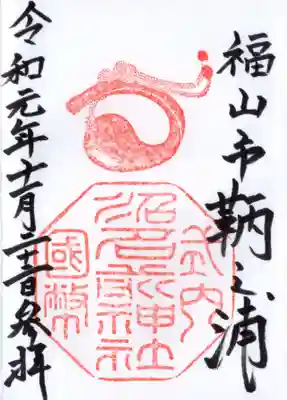 福山市鞆之浦
式内
沼名前神社
國幣
令和元年十一月 参拝